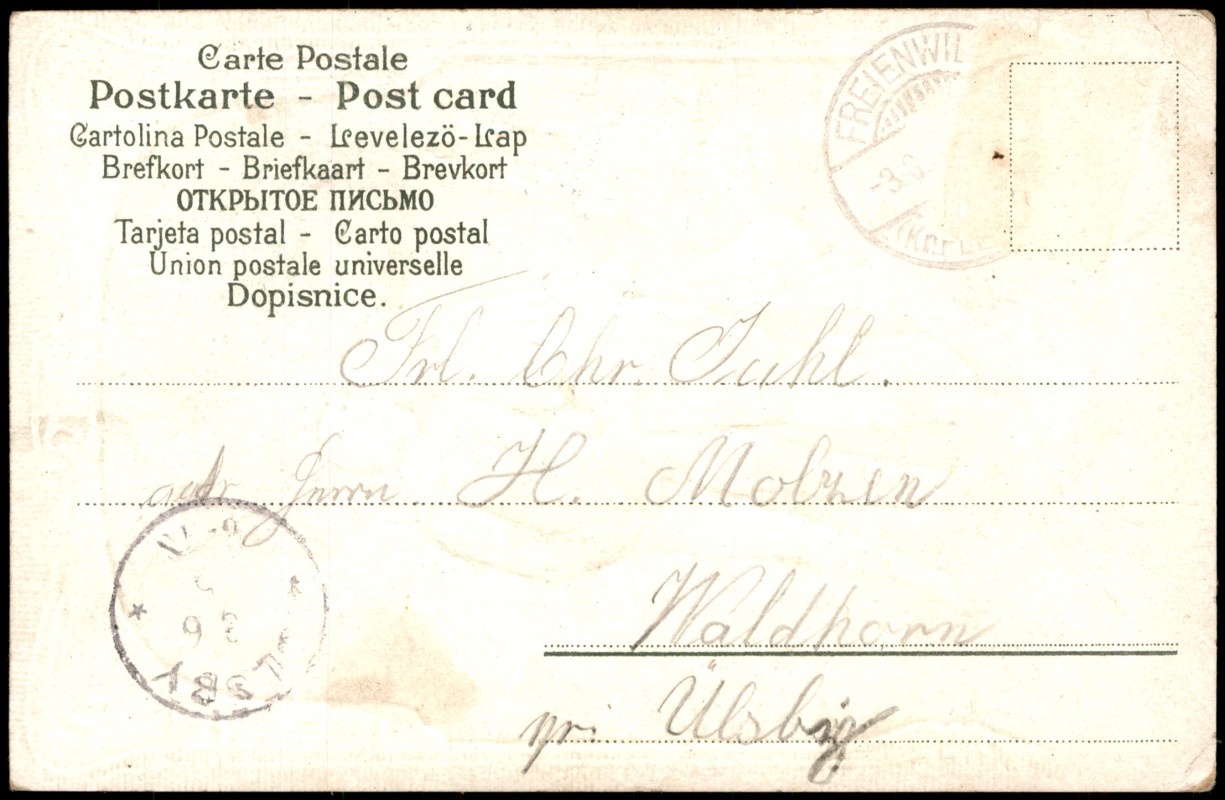 Carte Postale
Postkarte - Post card
Cartolina Postale - Levelező-Lap
Brefkort - Briefkaart - Brevkort
ОТКРЫТОЕ ПИСЬМО
Tarjeta postal - Carto postal
Union postale universelle
Dopisnice.
FREIENWIL
-3.6
Frl. Chr. Juhl.
H. Molzen
Waldhorn
pr. Ülsby
LSBY